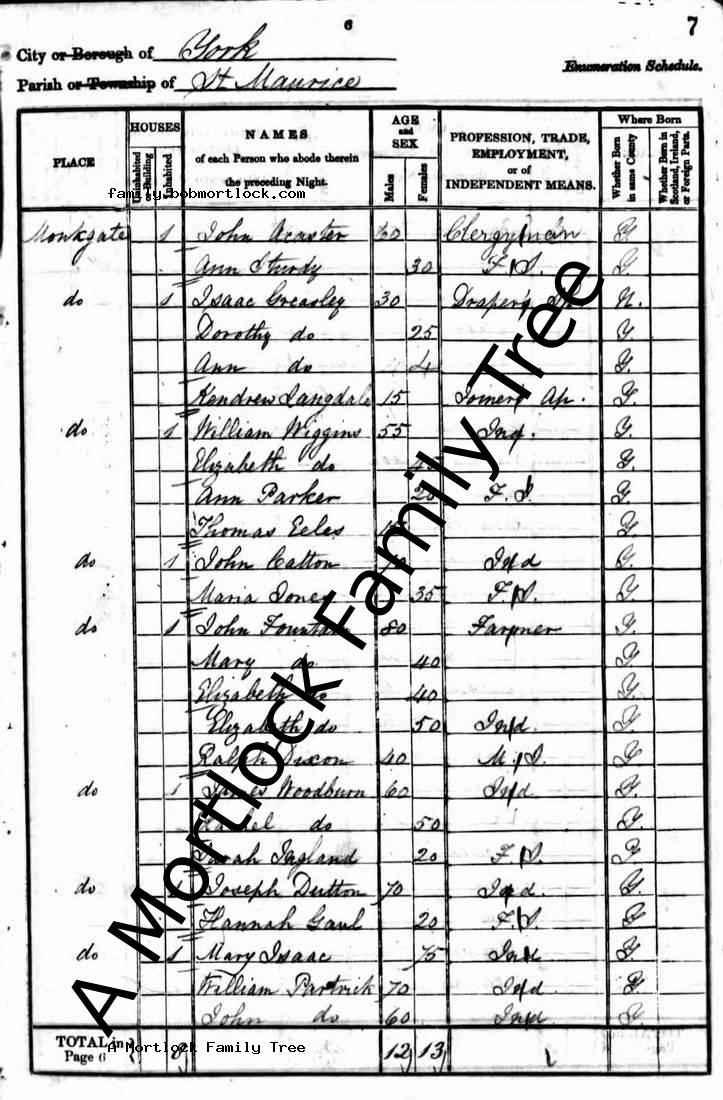 6
7
City or Borough of York
Enumeration Schedule.
Parish or Township of St Maurice
PLACE
HOUSES
Uninhabited or Building
Inhabited
NAMES
of each Person who abode therein
the preceding Night.
AGE and SEX
Males
Females
PROFESSION, TRADE,
EMPLOYMENT,
or of
INDEPENDENT MEANS.
Where Born
Whether Born in same County
Whether Born in Scotland, Ireland, or Foreign Parts.
family.bobmortlock.com
Monkgate 1 John Acaster 60 Clergyman Y.
Ann Sturdy 30 F.S. Y.
do 1 Isaac Greasley 30 Draper's N.
Dorothy do 25 Y.
Ann do 4 Y.
Kendrew Langdale 15 Joiners Ap. Y.
do 1 William Wiggins 55 Ind. Y.
Elizabeth do 45 Y.
Ann Parker 20 F.S. Y.
Thomas Eeles Y
do 1 John Catton Ind Y.
Maria Jones 35 F.S. Y
do 1 John Fountain 80 Farmer Y.
Mary do 40 Y.
Elizabeth do 40 Y.
Elizabeth do 50 Ind. Y.
Ralph Dixon 40 M.S. Y
do 1 James Woodburn 60 Ind Y.
do 50 Y.
Sarah Ingland 20 F.S. Y
do 1 Joseph Dutton 70 Ind. Y.
Hannah Gaul 20 F.S. Y
do 1 Mary Isaac 75 Ind Y.
William Partrick 70 Ind Y
John do 60 Ind. Y.
TOTAL in Page 6 8 12 13
A Mortlock Family Tree
A Mortlock Family Tree